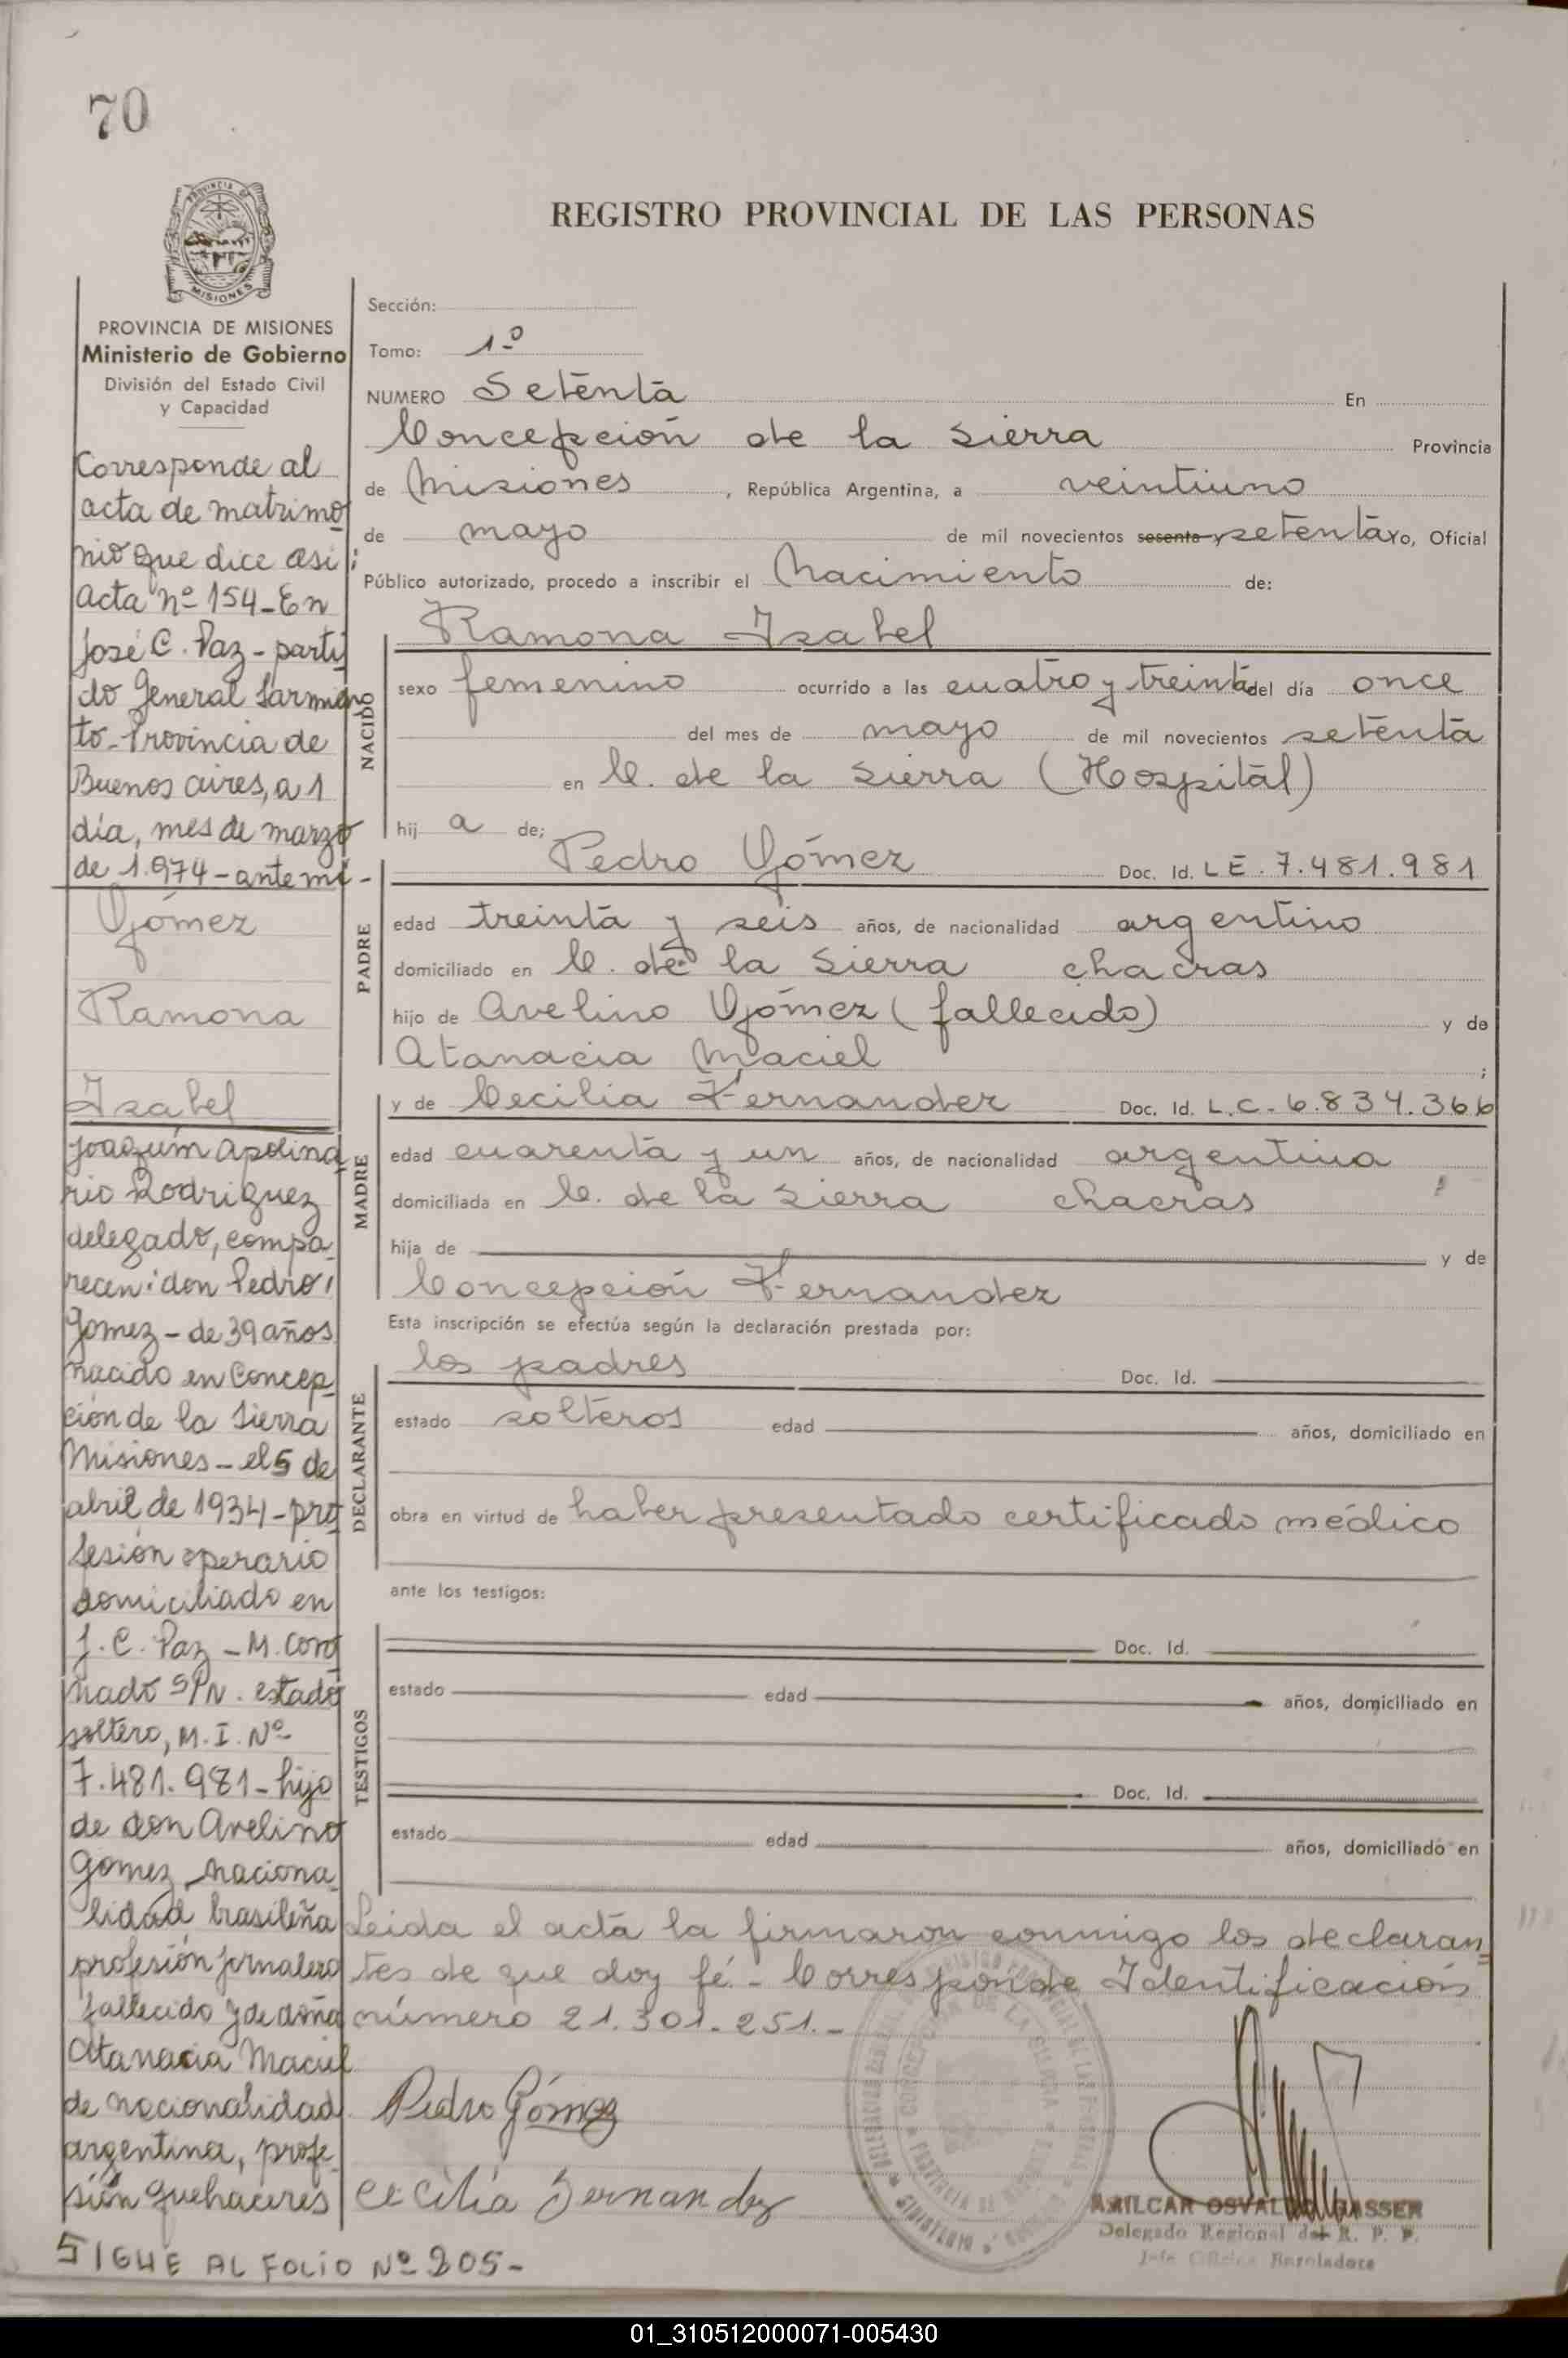 70
PROVINCIA DE
MISIONES
REGISTRO PROVINCIAL DE LAS PERSONAS
PROVINCIA DE MISIONES
Ministerio de Gobierno
División del Estado Civil
y Capacidad
Corresponde al
acta de matrimo
nio que dice asi:
acta nº 154 - En
José C. Paz - parti
do General Sarmien
to - Provincia de
Buenos aires, a 1
día, mes de marzo
de 1.974 - ante mi -
Gómez
Ramona
Isabel
Joaquím apolina
rio Rodriguez
delegado, compa
recen: don Pedro
Gomez - de 39 años
nacido en Concep
ción de la Sierra
Misiones - el 5 de
abril de 1934 - pro
fesión operario
domiciliado en
J. C. Paz - M. Coro
nado S/N. estado
soltero, M. I. Nº
7.481.981 - hijo
de don Avelino
Gomez naciona
lidad brasileña
profesión jornalero
fallecido y de doña
Atanacia Maciel
de nacionalidad
argentina, profe
sión quehaceres
SIGUE AL FOLIO Nº 205-
Sección:
Tomo: 1º
NUMERO Setenta En
Concepción de la Sierra Provincia
de Misiones, República Argentina, a veintiuno
de mayo de mil novecientos sesenta y setenta yo, Oficial
Público autorizado, procedo a inscribir el Nacimiento de:
Ramona Isabel
NACIDO
sexo femenino ocurrido a las cuatro y treinta del día once
del mes de mayo de mil novecientos setenta
en C. de la Sierra (Hospital)
hij a de;
PADRE
Pedro Gómez Doc. Id. LE. 7.481.981
edad treinta y seis años, de nacionalidad argentino
domiciliado en C. de la Sierra chacras
hijo de Avelino Gómez (fallecido) y de
Atanacia Maciel ;
MADRE
y de Cecilia Fernandez Doc. Id. L.C. 6.834.366
edad cuarenta y un años, de nacionalidad argentina
domiciliada en C. de la Sierra chacras
hija de y de
Concepción Fernandez
Esta inscripción se efectúa según la declaración prestada por:
DECLARANTE
los padres Doc. Id.
estado solteros edad años, domiciliado en
obra en virtud de haber presentado certificado médico
ante los testigos:
TESTIGOS
Doc. Id.
estado edad años, domiciliado en
Doc. Id.
estado edad años, domiciliado en
Leida el acta la firmaron conmigo los declaran
tes de que doy fé - Corresponde Identificación
número 21.301.251.-
Pedro Gómez
Cecilia Fernandez
AMILCAR OSVALDO GASSER
Delegado Regional del R. P. P.
01_310512000071-005430